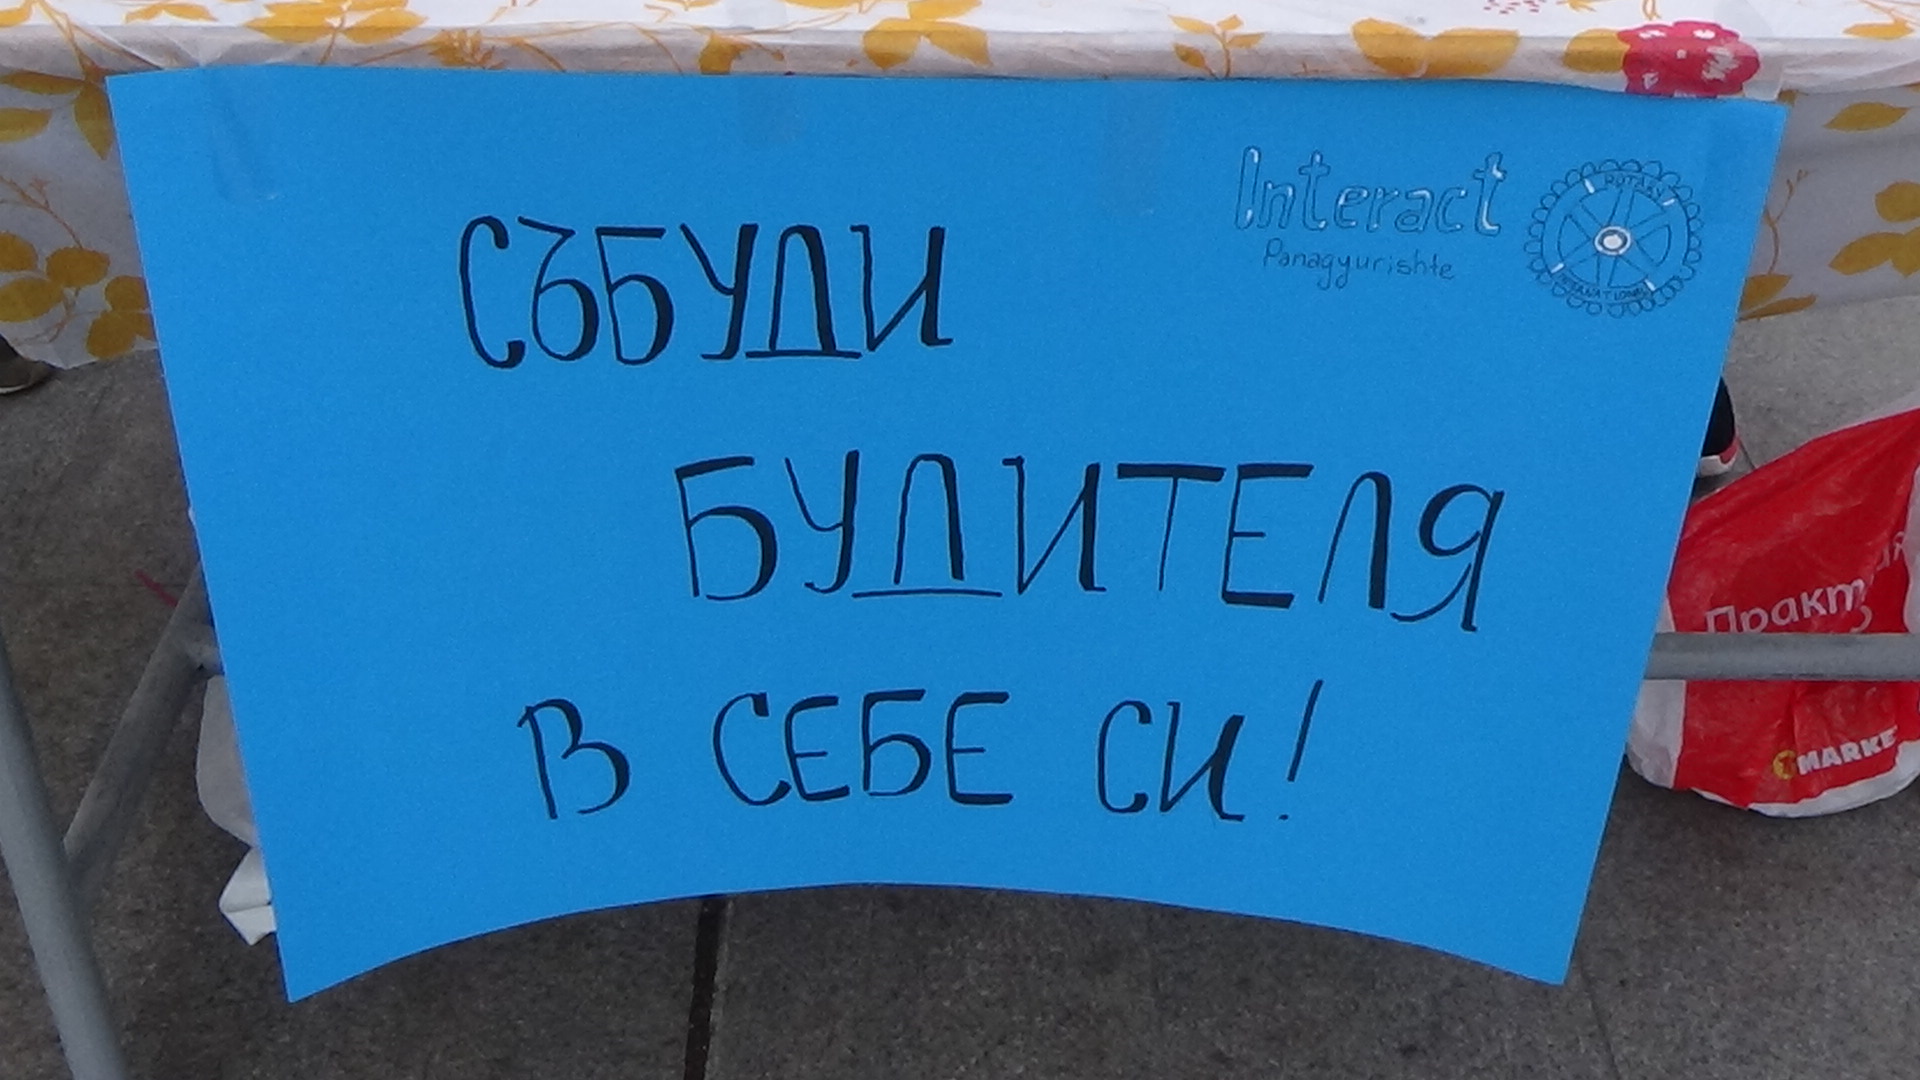 Interact
Panagyurishte
ROTARY
СЪБУДИ
БУДИТЕЛЯ
В СЕБЕ СИ!
MARKE